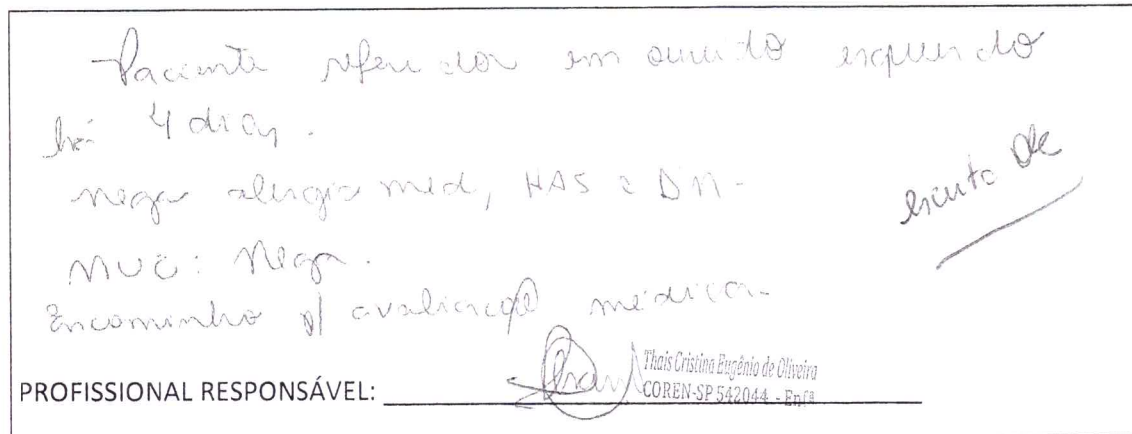 Paciente refere dor em ouvido esquerdo
há 4 dias.
nega alergia med, HAS e DM.
MUC: Nega.
Encaminho p/ avaliação médica.
escuto
PROFISSIONAL RESPONSÁVEL:
Thais Cristina Eugênio de Oliveira
COREN-SP 542044 - Enfª